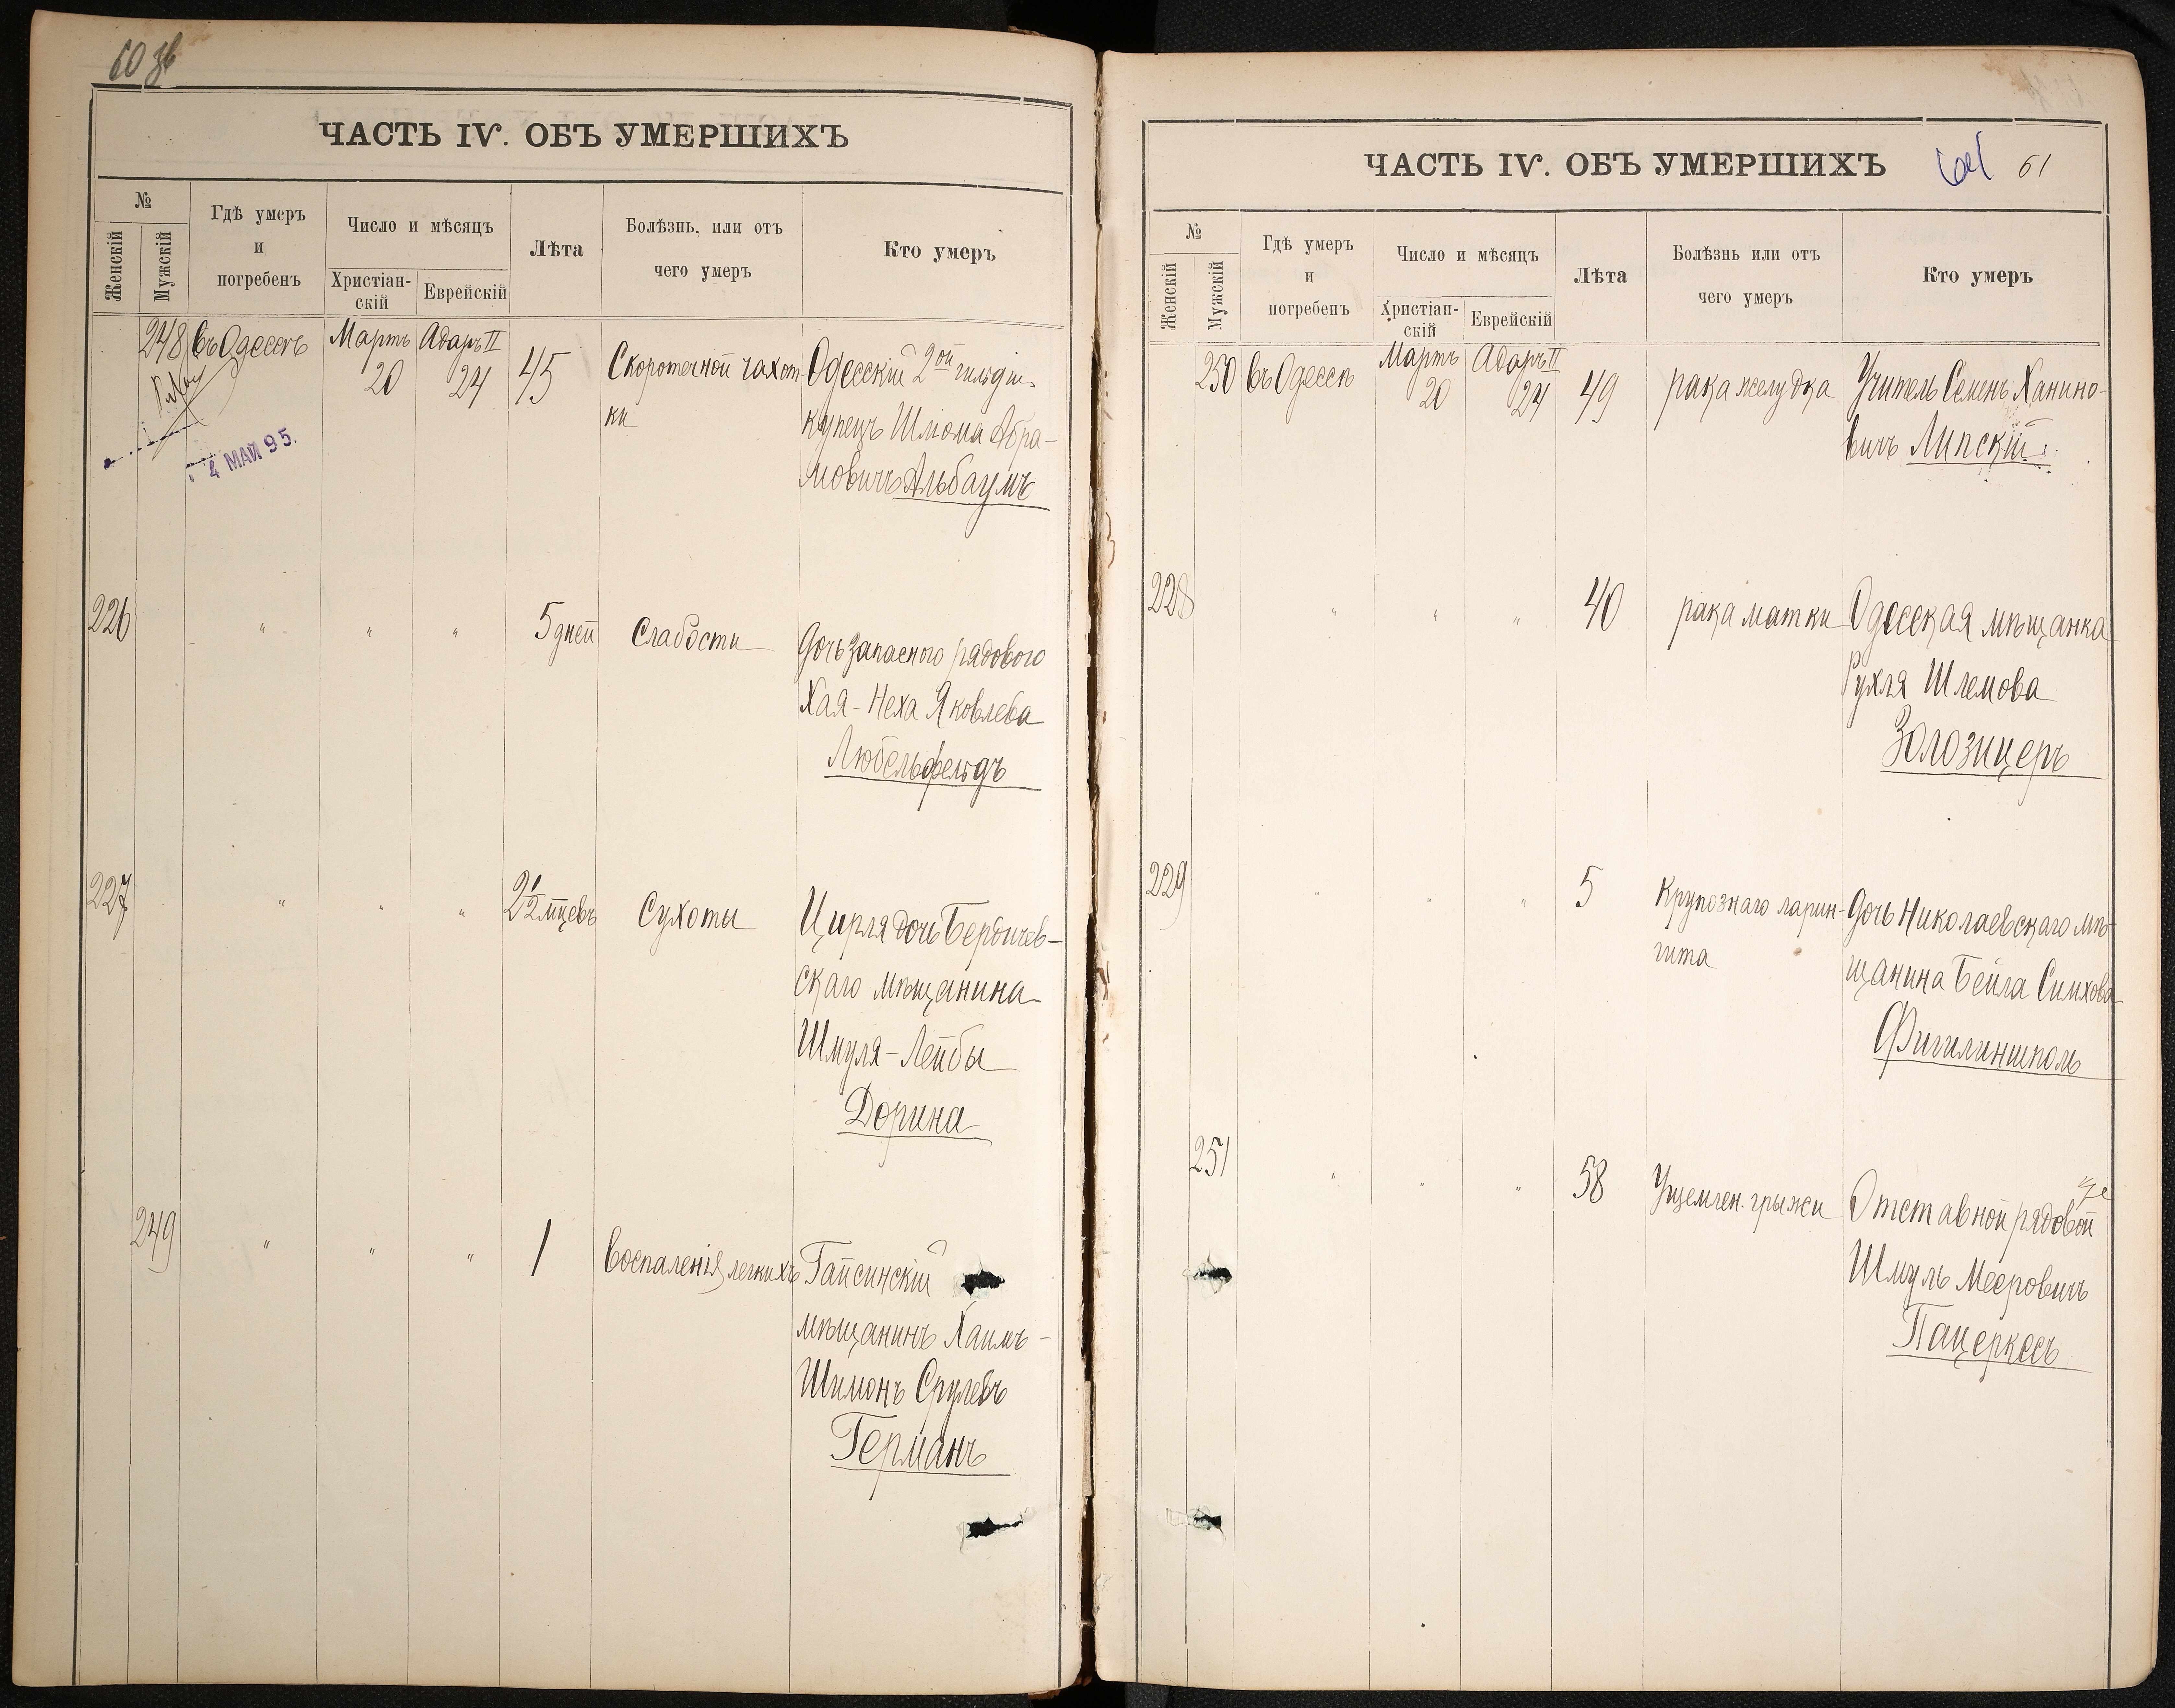 60 зв
ЧАСТЬ IV. ОБЪ УМЕРШИХЪ
№
Женскій
Мужскій
Гдѣ умеръ
и
погребенъ
Число и мѣсяцъ
Христіан-
скій
Еврейскій
Лѣта
Болѣзнь, или отъ
чего умеръ
Кто умеръ
248 въ Одессѣ Мартъ Адаръ II
20 24 45 Скоротечной чахот-
ки
Одесскій 2ой гильдіи
купецъ Шлюма Абра-
мовичъ Альбаумъ
4 МАЙ 95.
226 " " " 5 дней Слабости
Дочь запаснаго рядового
Хая-Неха Яковлева
Любельфельдъ
227 " " " 2 1/2 мцевъ Сухоты
Цирля дочь Бердичев-
скаго мѣщанина
Шмуля-Лейбы
Дорина
249 " " " 1 Воспаленія легкихъ
Гайсинскій
мѣщанинъ Хаимъ-
Шимонъ Срулевъ
Германъ
ЧАСТЬ IV. ОБЪ УМЕРШИХЪ
61
№
Женскій
Мужскій
Гдѣ умеръ
и
погребенъ
Число и мѣсяцъ
Христіан-
скій
Еврейскій
Лѣта
Болѣзнь или отъ
чего умеръ
Кто умеръ
250 въ Одессѣ Мартъ Адаръ II
20 24 49 рака желудка
Учитель Семенъ Ханино-
вичъ Липскій
228 " " " 40 рака матки
Одесская мѣщанка
Рухля Шлемова
Золозицеръ
229 " " " 5 Крупознаго ларин-
гита
Дочь Николаевскаго мѣ-
щанина Бейла Симхова
Фигилиншполь
251 " " " 58 Ущемлен. грыжи
Отставной рядовой
Шмуль Мееровичъ
Пацеркесъ